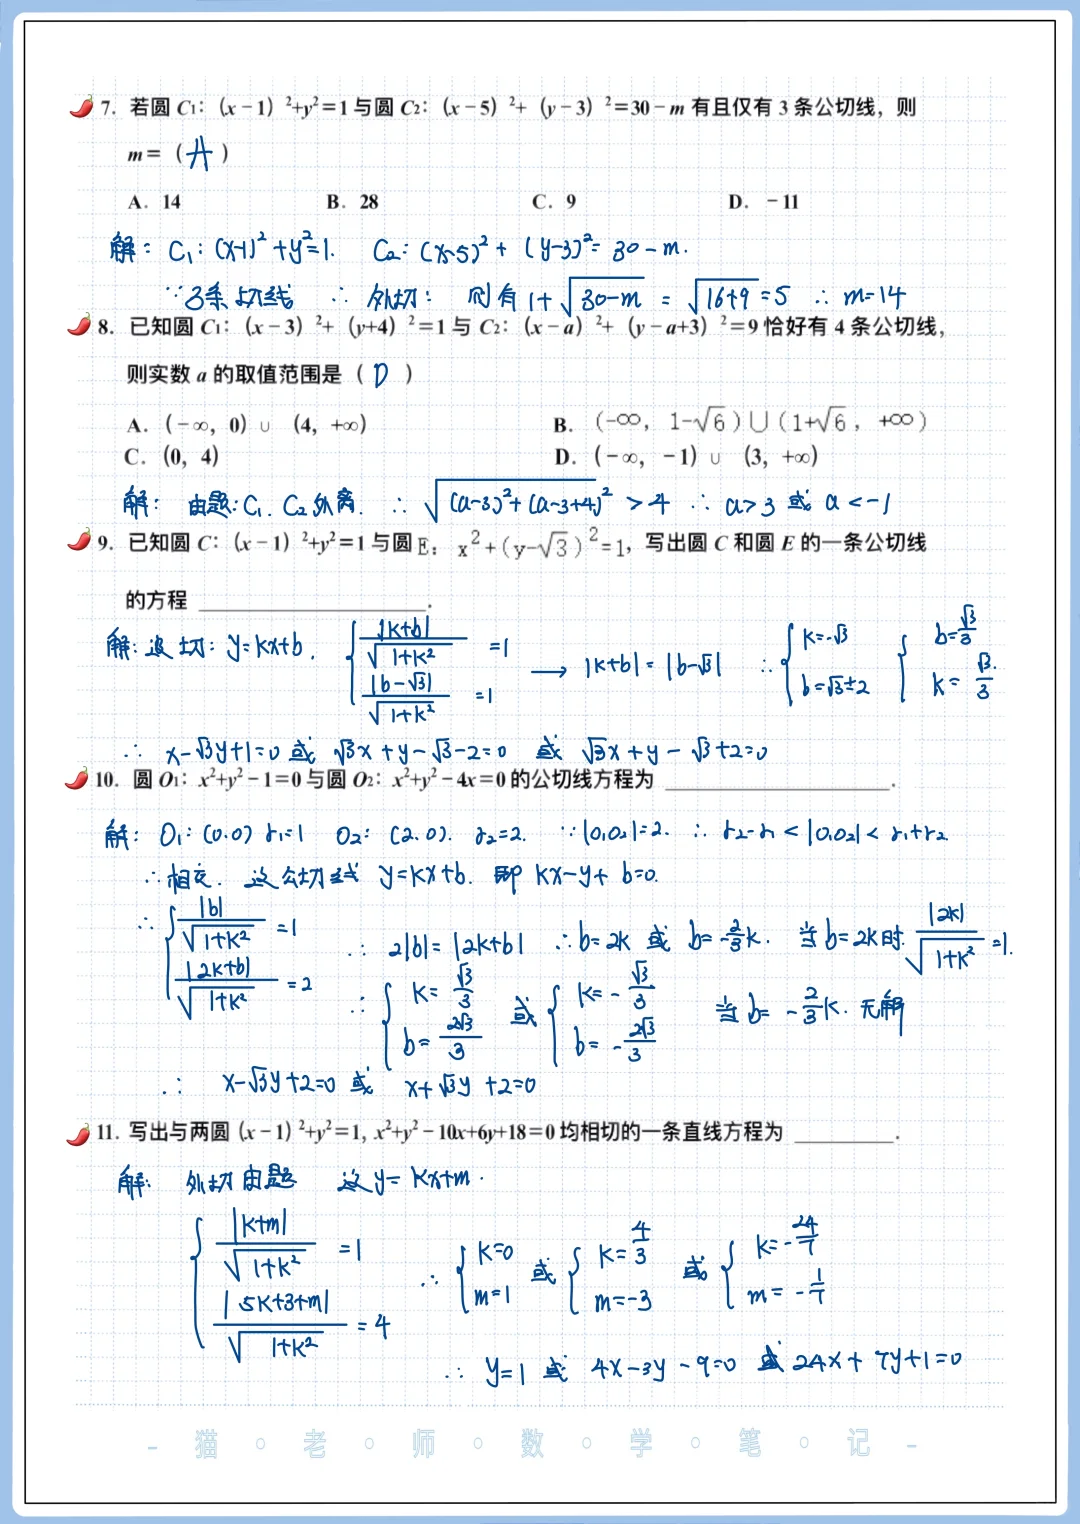 7. 若圆 C₁：（x－1）²+y²=1 与圆 C₂：（x－5）²+（y－3）²=30－m 有且仅有 3 条公切线，则
m=（ A ）
A. 14 B. 28 C. 9 D. －11
解：C₁：(x-1)²+y²=1. C₂：(x-5)²+(y-3)²=30-m.
∵3条切线 ∴外切：则有1+√(30-m)=√(16+9)=5 ∴m=14
8. 已知圆 C₁：（x－3）²+（y+4）²=1 与 C₂：（x－a）²+（y－a+3）²=9 恰好有 4 条公切线，
则实数 a 的取值范围是（ D ）
A.（－∞，0）∪（4，+∞） B.（-∞，1-√6）∪（1+√6，+∞）
C.（0，4） D.（－∞，－1）∪（3，+∞）
解：由题：C₁. C₂外离. ∴√((a-3)²+(a-3+4)²)>4 ∴a>3 或 a<-1
9. 已知圆 C：（x－1）²+y²=1 与圆E：x²+(y-√3)²=1，写出圆 C 和圆 E 的一条公切线
的方程 ______.
解：设切：y=kx+b. { |k+b|/√(1+k²)=1 |b-√3|/√(1+k²)=1 → |k+b|=|b-√3| ∴{ k=-√3 b=√3±2 { b=√3/3 k=√3/3.
∴ x-√3y+1=0 或 √3x+y-√3-2=0 或 √3x+y-√3+2=0
10. 圆 O₁：x²+y²－1=0 与圆 O₂：x²+y²－4x=0 的公切线方程为 ______.
解：O₁：(0.0) r₁=1 O₂：(2.0). r₂=2. ∵|O₁O₂|=2. ∴r₂-r₁<|O₁O₂|<r₁+r₂
∴相交. 设公切线 y=kx+b. 即 kx-y+b=0.
∴{ |b|/√(1+k²)=1 |2k+b|/√(1+k²)=2 ∴2|b|=|2k+b| ∴b=2k 或 b=-2/3k. 当b=2k时. |2k|/√(1+k²)=1.
∴{ k=√3/3 b=2√3/3 或{ k=-√3/3 b=-2√3/3 当b=-2/3k.无解
∴ x-√3y+2=0 或 x+√3y+2=0
11. 写出与两圆（x－1）²+y²=1, x²+y²－10x+6y+18=0 均相切的一条直线方程为 ______.
解：外切由题 设y=kx+m.
{ |k+m|/√(1+k²)=1 |5k+3+m|/√(1+k²)=4 ∴{ k=0 m=1 或{ k=4/3 m=-3 或{ k=-24/7 m=-1/7
∴ y=1 或 4x-3y-9=0 或 24x+7y+1=0
- 猫 · 老 · 师 · 数 · 学 · 笔 · 记 -